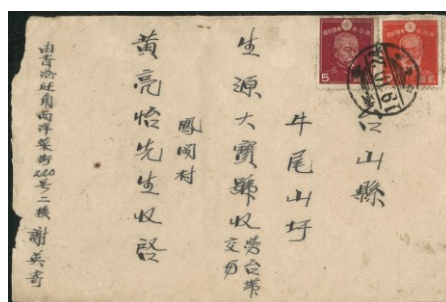 台山縣
牛尾山圩
生源大寶號收
勞台幣
交另
鳳岡村
黃亮怡先生收啓
由香港旺角西洋菜街220号二樓 謝英寄
5